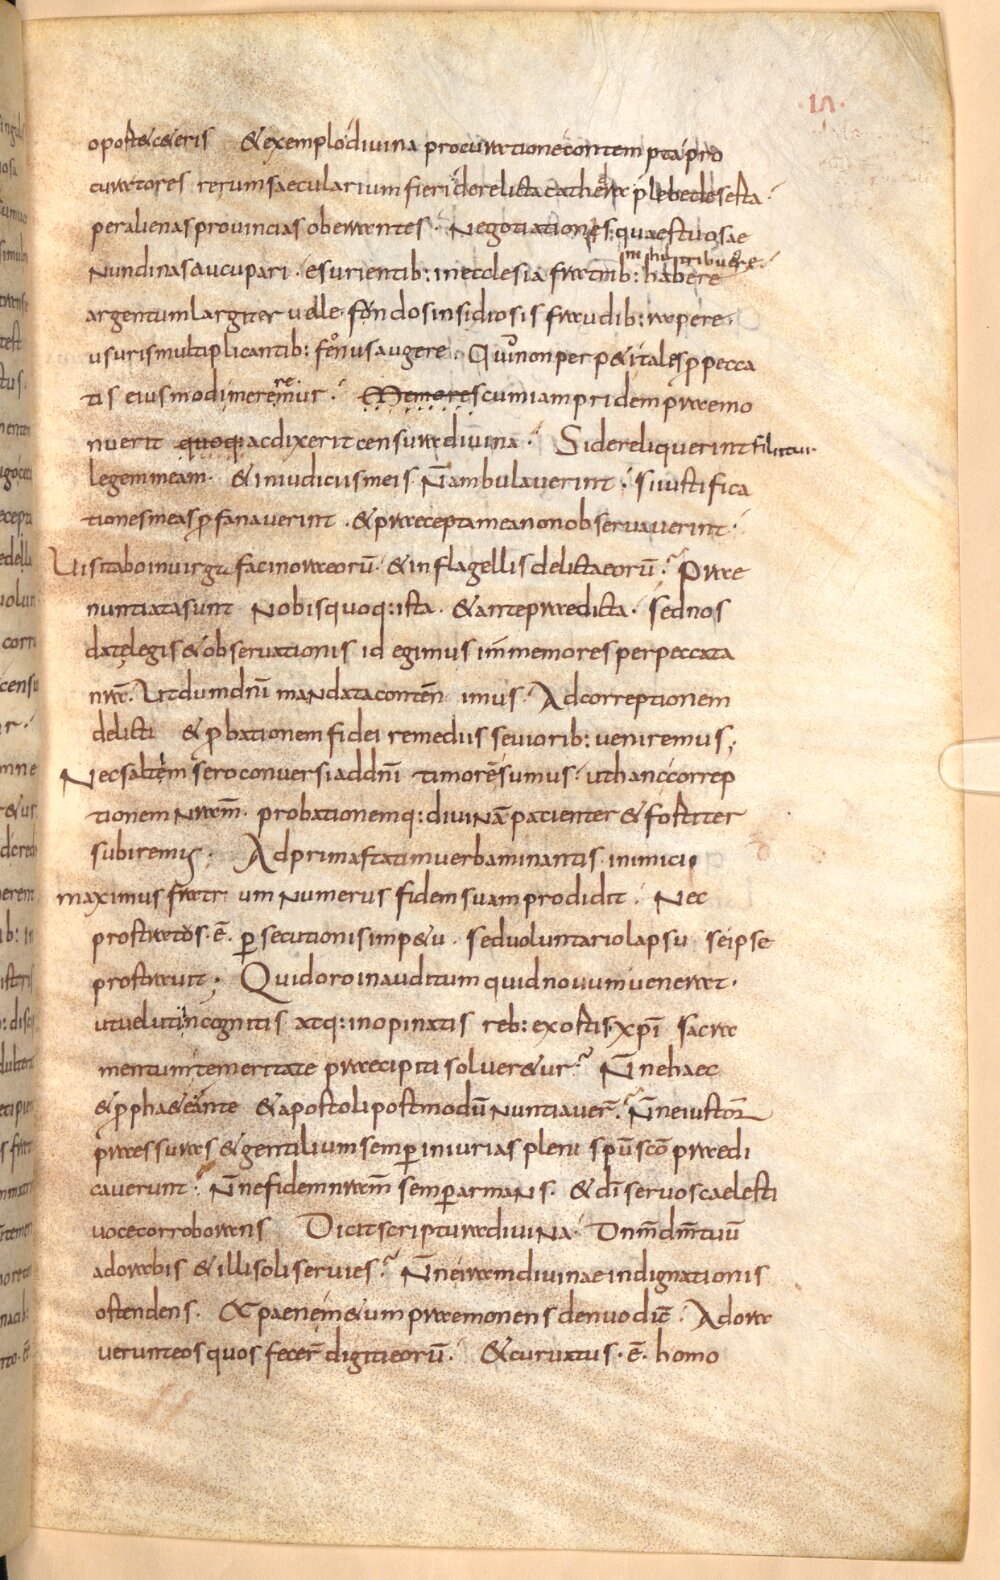 ·VI·
oport& c&eris & exemplo divina procuratione contempta pro
curatores rerum saecularium fieri derelicta cathedra plebe deserta
per alienas provincias oberrantes · Negotiationes quaestuosae
Nundinas aucupari · esurientib: in ecclesia fratrib: habere
argentum largiter velle · fundos insidiosis fraudib: rapere ·
usuris multiplicantib: fenus augere · Quid non perp&i tales p pecca
tis eiusmodi meremur · Memores cum iam pridem praemo
nuerit quoq: ac dixerit censura divina · Si dereliquerint filii tui
legem meam · & in iudiciis meis N̄ ambulaverint · si iustifica
tiones meas pfanaverint · & praecepta mea non observaverint ·
Visitabo in virga facinora eorū · & in flagellis delicta eorū · Prae
nuntiata sunt Nobis quoq: ista · & ante praedicta · sed nos
datę legis & observationis id egimus immemores per peccata
nr̄a · Ut dum dn̄i maNdata contēn imus · Ad correptionem
delicti & pbationem fidei remediis seviorib: veniremus ;
Nec saltem sero conversi ad dn̄i timorē sumus · ut hanc correp
tionem Nr̄am · probationemq: diviNā patienter & fortiter
subiremus · Ad prima statim verba minantis inimici
maximus fratr um Numerus fidem suam prodidit · Nec
prostratos · ē · p secutionis imp&u · sed voluntario lapsu se ipse
prostravit · Quid oro inauditum quid novum venerat ·
ut velut incognitis atq: inopinatis reb: exortis · xp̄i sacra
mentum temeritate praecipiti solver&ur · N̄ne haec
& pph&ę ante & apostoli postmodū Nuntiaver̄ · N̄ne iustorū
praessuras & gentilium semp iniurias pleni sp̄u sc̄o praedi
caverunt · N̄ne fidem nr̄am semp armaNs · & dī servos caelesti
voce corroborans Dicit scriptura diviNa · Dnm̄ dm̄ tuū
adorabis & illi soli servies · N̄ne iram divinae indignationis
ostendens · & paenę m&um praemonens denuo dic̄ · Adora
verunt eos quos fecer̄ digiti eorū · & curvatus · ē · homo